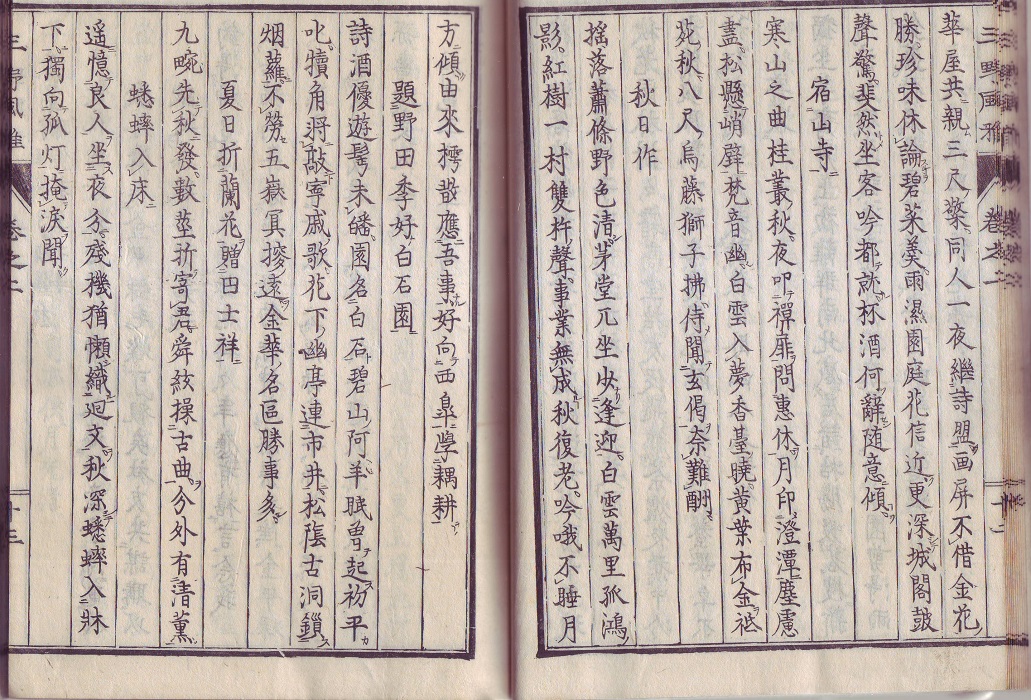 華屋共親三尺檠同人一夜繼詩盟画屏不借金花
勝珍味休論碧菜羹雨濕園庭花信近更深城閣鼓
聲驚斐然坐客吟都就杯酒何辭随意傾
宿山寺
寒山之曲桂叢秋夜叩禪扉問惠休月印澄潭塵慮
盡松懸峭壁梵音幽白雲入夢香臺曉黄葉布金祗
苑秋八尺烏藤獅子拂侍聞玄偈奈難酬
秋日作
揺落蕭條野色清茅堂兀坐少逢迎白雲萬里孤鴻
影紅樹一村雙杵聲事業無成秋復老吟哦不睡月
方傾由來樗散應吾事好向西皐學耦耕
題野田季好白石園
詩酒優遊髩未皤園名白石碧山阿羊眠曽起初平
叱犢角將敲寧戚歌花下幽亭連市井松陰古洞鎖
烟蘿不勞五嶽冥搜遠金華名區勝事多
夏日折蘭花贈田士祥
九畹先秋發數莖折寄君舜絃操古曲分外有清薫
蟋蟀入床
遥憶良人坐夜分殘機猶懶織廻文秋深蟋蟀入牀
下獨向孤灯掩淚聞
三野風雅
卷之一
三野風雅
卷之二
十三